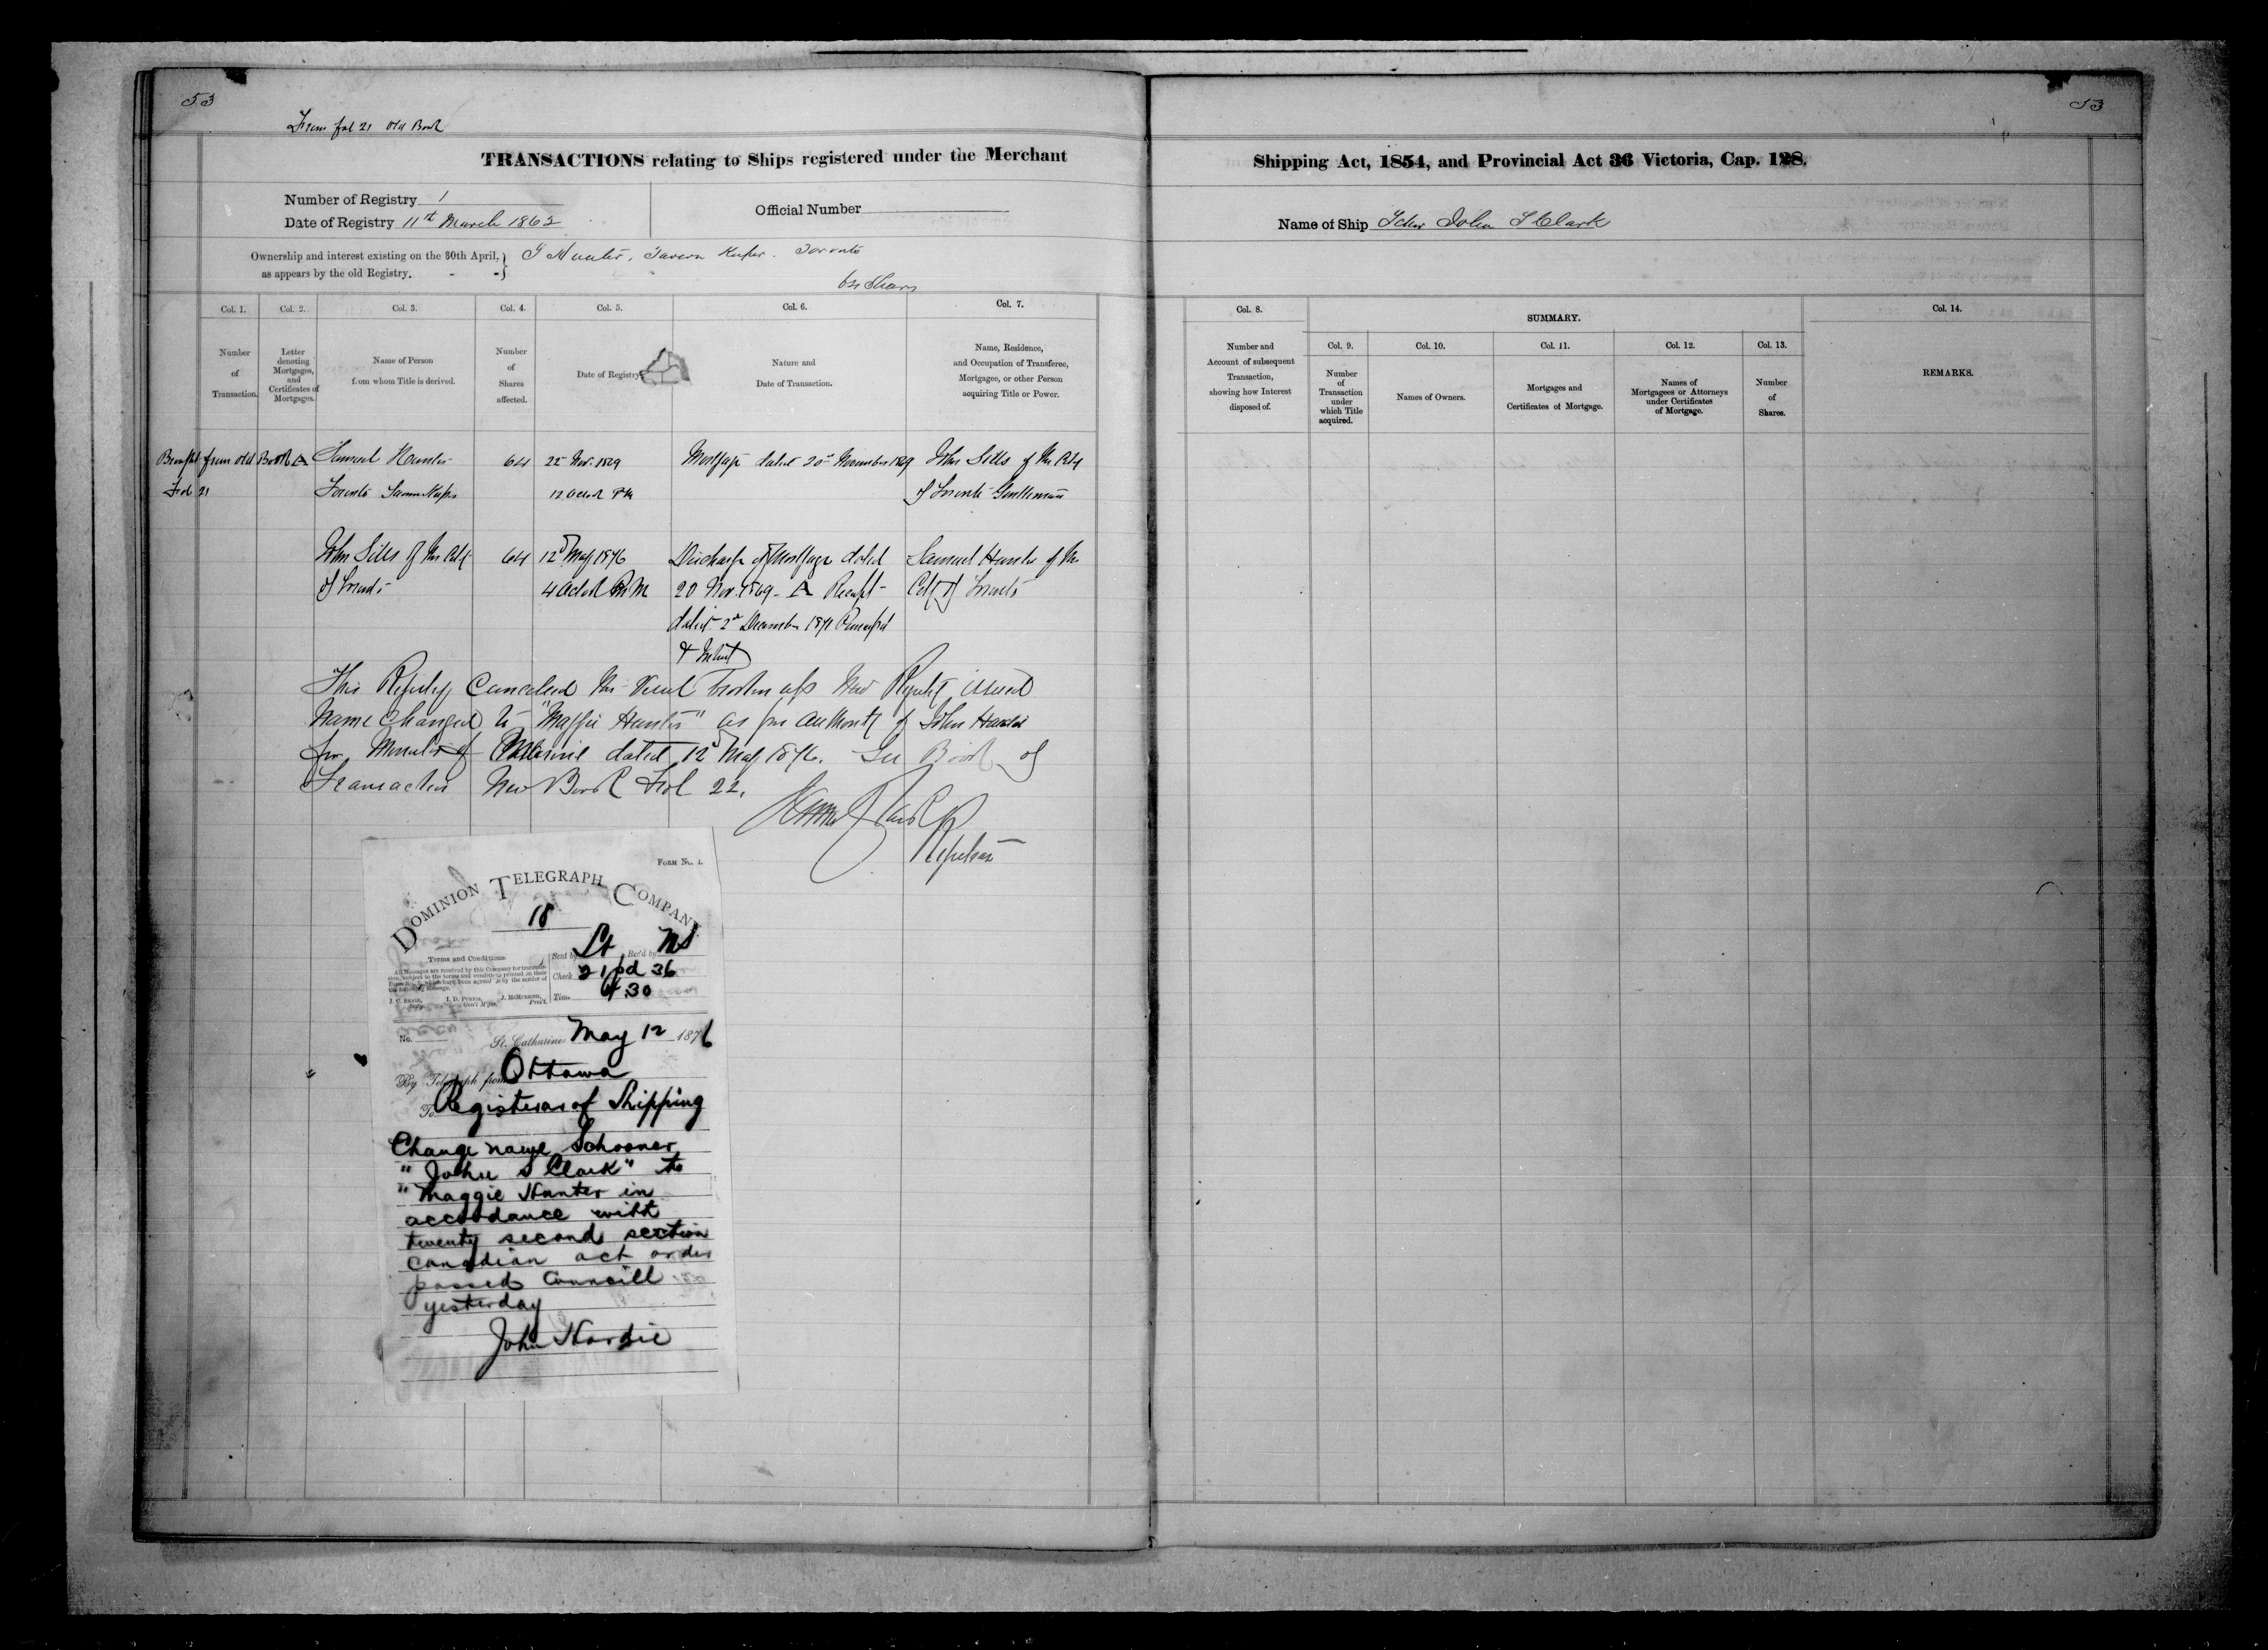 53
53
From fol 21 Old Book
TRANSACTIONS relating to Ships registered under the Merchant Shipping Act, 1854, and Provincial Act 36 Victoria, Cap. 128.
Number of Registry 1
Date of Registry 11th March 1863
Official Number
Name of Ship Schr John S Clark
Ownership and interest existing on the 30th April,
as appears by the old Registry.
S Hunter, Tavern Keeper. Toronto
64 Shares
Col. 1.
Number
of
Transaction.
Col. 2.
Letter
denoting
Mortgages,
and
Certificates of
Mortgages.
Col. 3.
Name of Person
from whom Title is derived.
Col. 4.
Number
of
Shares
affected.
Col. 5.
Date of Registry
Col. 6.
Nature and
Date of Transaction.
Col. 7.
Name, Residence,
and Occupation of Transferee,
Mortgagee, or other Person
acquiring Title or Power.
Col. 8.
Number and
Account of subsequent
Transaction,
showing how Interest
disposed of.
SUMMARY.
Col. 9.
Number
of
Transaction
under
which Title
acquired.
Col. 10.
Names of Owners.
Col. 11.
Mortgages and
Certificates of Mortgage.
Col. 12.
Names of
Mortgagees or Attorneys
under Certificates
of Mortgage.
Col. 13.
Number
of
Shares.
Col. 14.
REMARKS.
Brought from old Book A
Fol 21
Samuel Hunter
Toronto Tavern Keeper
64
22 Nov. 1869
12 oclock
Mortgage dated 20th November 1869
John Sills of the City
of Toronto Gentleman
John Sills of the City
of Toronto
64
12th May 1876
4 oclock PM
Discharge of Mortgage dated
20 Nov. 1869 - A Receipt
dated 2nd December 1871 Principal
&
Samuel Hunter of the
City of Toronto
This Registry Cancelled the Vessel New Registry issued
Name Changed to "Maggie Hunter" as per authority of John Hardie
for Minister of Marine dated 12th May 1876. See Book of
Transaction New Book Fol 22.
Registrar
FORM No. 1.
DOMINION TELEGRAPH COMPANY
18
Terms and Conditions
All Messages are received by this Company for transmission, subject to the terms and conditions printed on their
Sent by St Rec'd by
Check 21 pd 36
Time 4.30
No.
St. Catharines May 12 1876
By Telegraph from Ottawa
To Registerar of Shipping
Change name Schooner
"John S Clark" to
"Maggie Hunter in
accordance with
twenty second section
canadian act order
passed Councill
yesterday
John Hardie